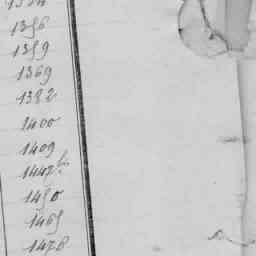 1356
1359
1369
1382
1400
1409
1447 b.
1450
1465
1478